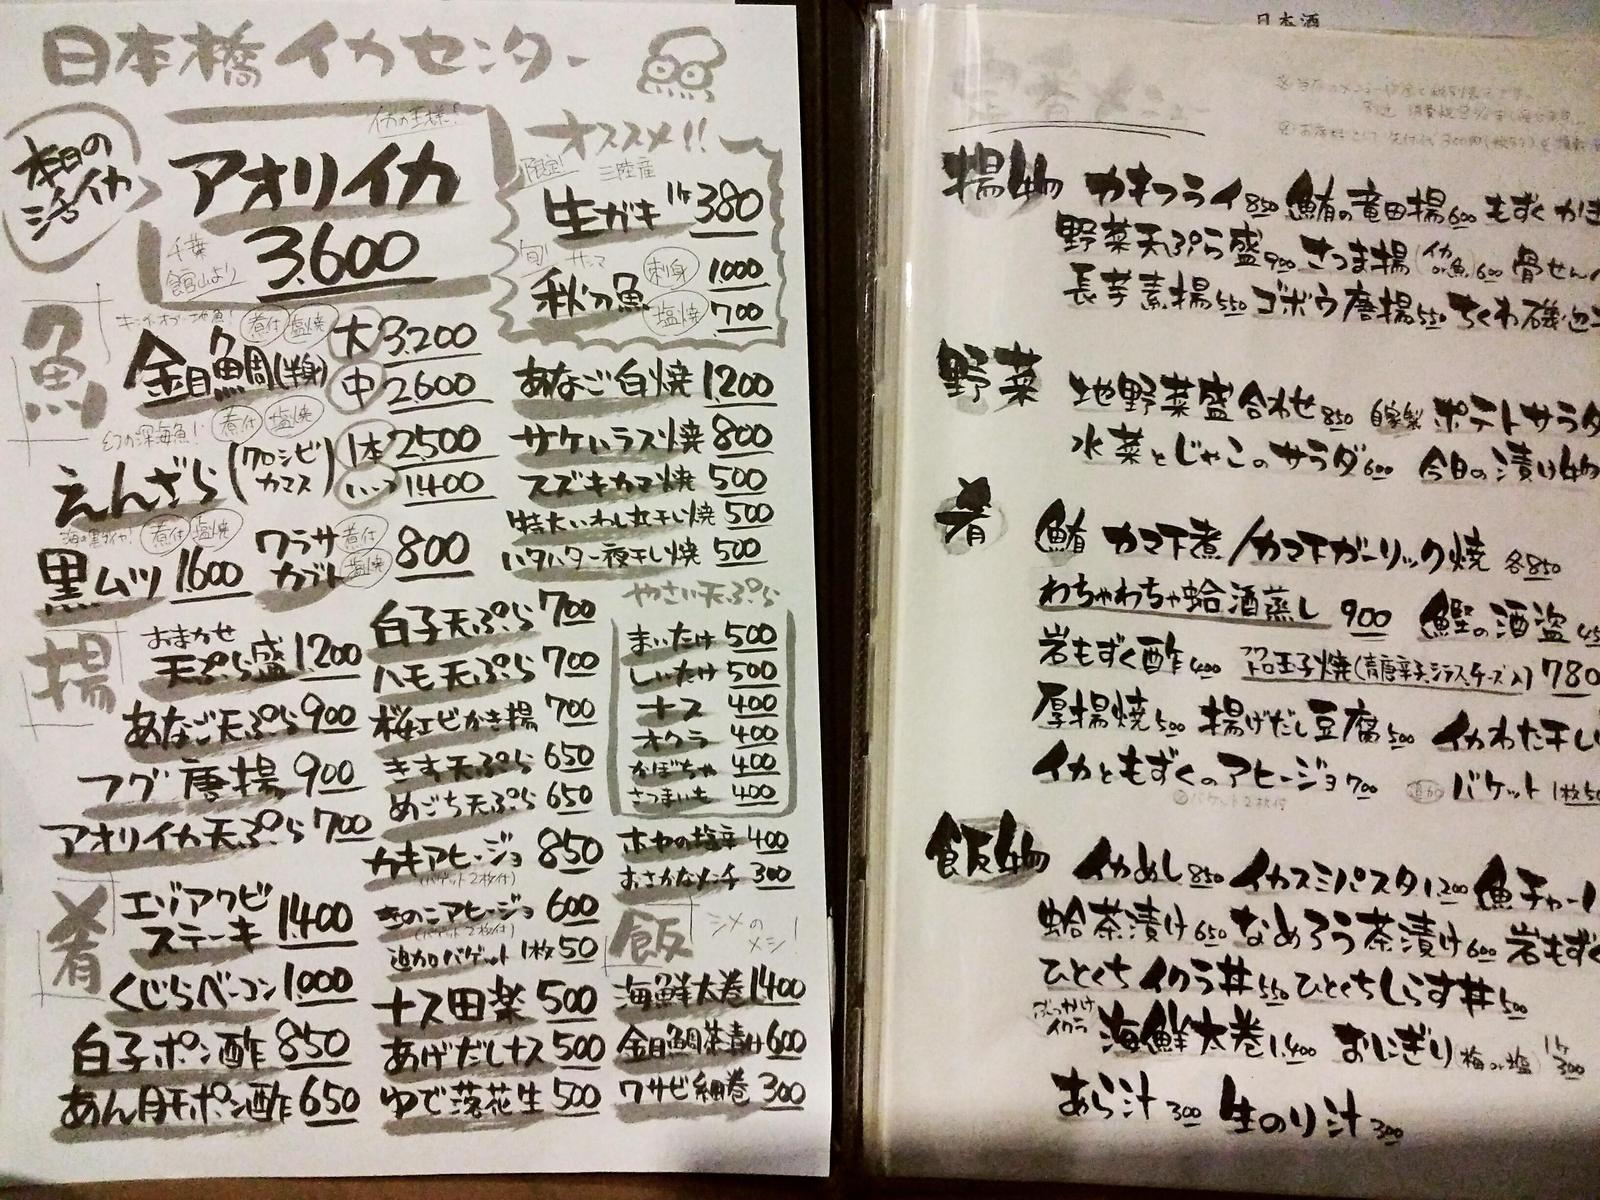 日本橋イカセンター
本日の活イカ
イカの王様!
アオリイカ
千葉館山より
3.600
オススメ!!
限定! 三陸産
生ガキ 1ヶ 380
旬! サンマ
秋刀魚 刺身 1.000
塩焼 700
魚
煮付 塩焼
金目鯛(半身) 大 3.200
中 2.600
幻の深海魚! 煮付 塩焼
えんざら(クロシビカマス) 1本 2500
1/2 1.400
煮付 塩焼
黒ムツ 1.600
ワラサカブト 煮付 塩焼 800
あなご白焼 1.200
サケハラス焼 800
スズキカマ焼 500
特大いわし丸干し焼 500
ハタハタ一夜干し焼 500
揚
おまかせ
天ぷら盛 1.200
あなご天ぷら 900
フグ唐揚 900
アオリイカ天ぷら 700
白子天ぷら 700
ハモ天ぷら 700
桜エビかき揚 700
きす天ぷら 650
めごち天ぷら 650
やさい天ぷら
まいたけ 500
しいたけ 500
ナス 400
オクラ 400
かぼちゃ 400
さつまいも 400
肴
エゾアワビステーキ 1.400
くじらベーコン 1.000
白子ポン酢 850
あん肝ポン酢 650
カキアヒージョ 850
(バゲット2枚付)
きのこアヒージョ 600
(バゲット2枚付)
追加バゲット 1枚 50
ナス田楽 500
あげだしナス 500
ゆで落花生 500
ホヤの塩辛 400
おさかなメンチ 300
飯 シメのメシ!
海鮮太巻 1.400
金目鯛茶漬け 600
ワサビ細巻 300
日本酒
定番メニュー
揚物 カキフライ 850 鮪の竜田揚 600 もずくかき
野菜天ぷら盛 900 さつま揚(イカor魚) 600 骨せん
長芋素揚 550 ゴボウ唐揚 550 ちくわ磯辺
野菜 地野菜盛合わせ 850 自家製 ポテトサラダ
水菜とじゃこのサラダ 600 今日の漬け物
肴 鮪 カマ下煮/カマ下ガーリック焼 各850
わちゃわちゃ蛤酒蒸し 900 鰹の酒盗
岩もずく酢 400 玉子焼(青唐辛子、シラス、チーズ入) 780
厚揚焼 500 揚げだし豆腐 500 イカわた干し
イカともずくのアヒージョ 700 追加 バケット 1枚50
バケット2枚付
飯物 イカめし 850 イカスミパスタ 1200 魚チャー
蛤茶漬け 650 なめろう茶漬け 600 岩もずく
ひとくちイクラ丼 550 ひとくちしらす丼 500
ぶっかけイクラ 海鮮太巻 1.400 おにぎり(梅or塩) 1ヶ300
あら汁 300 生のり汁 300